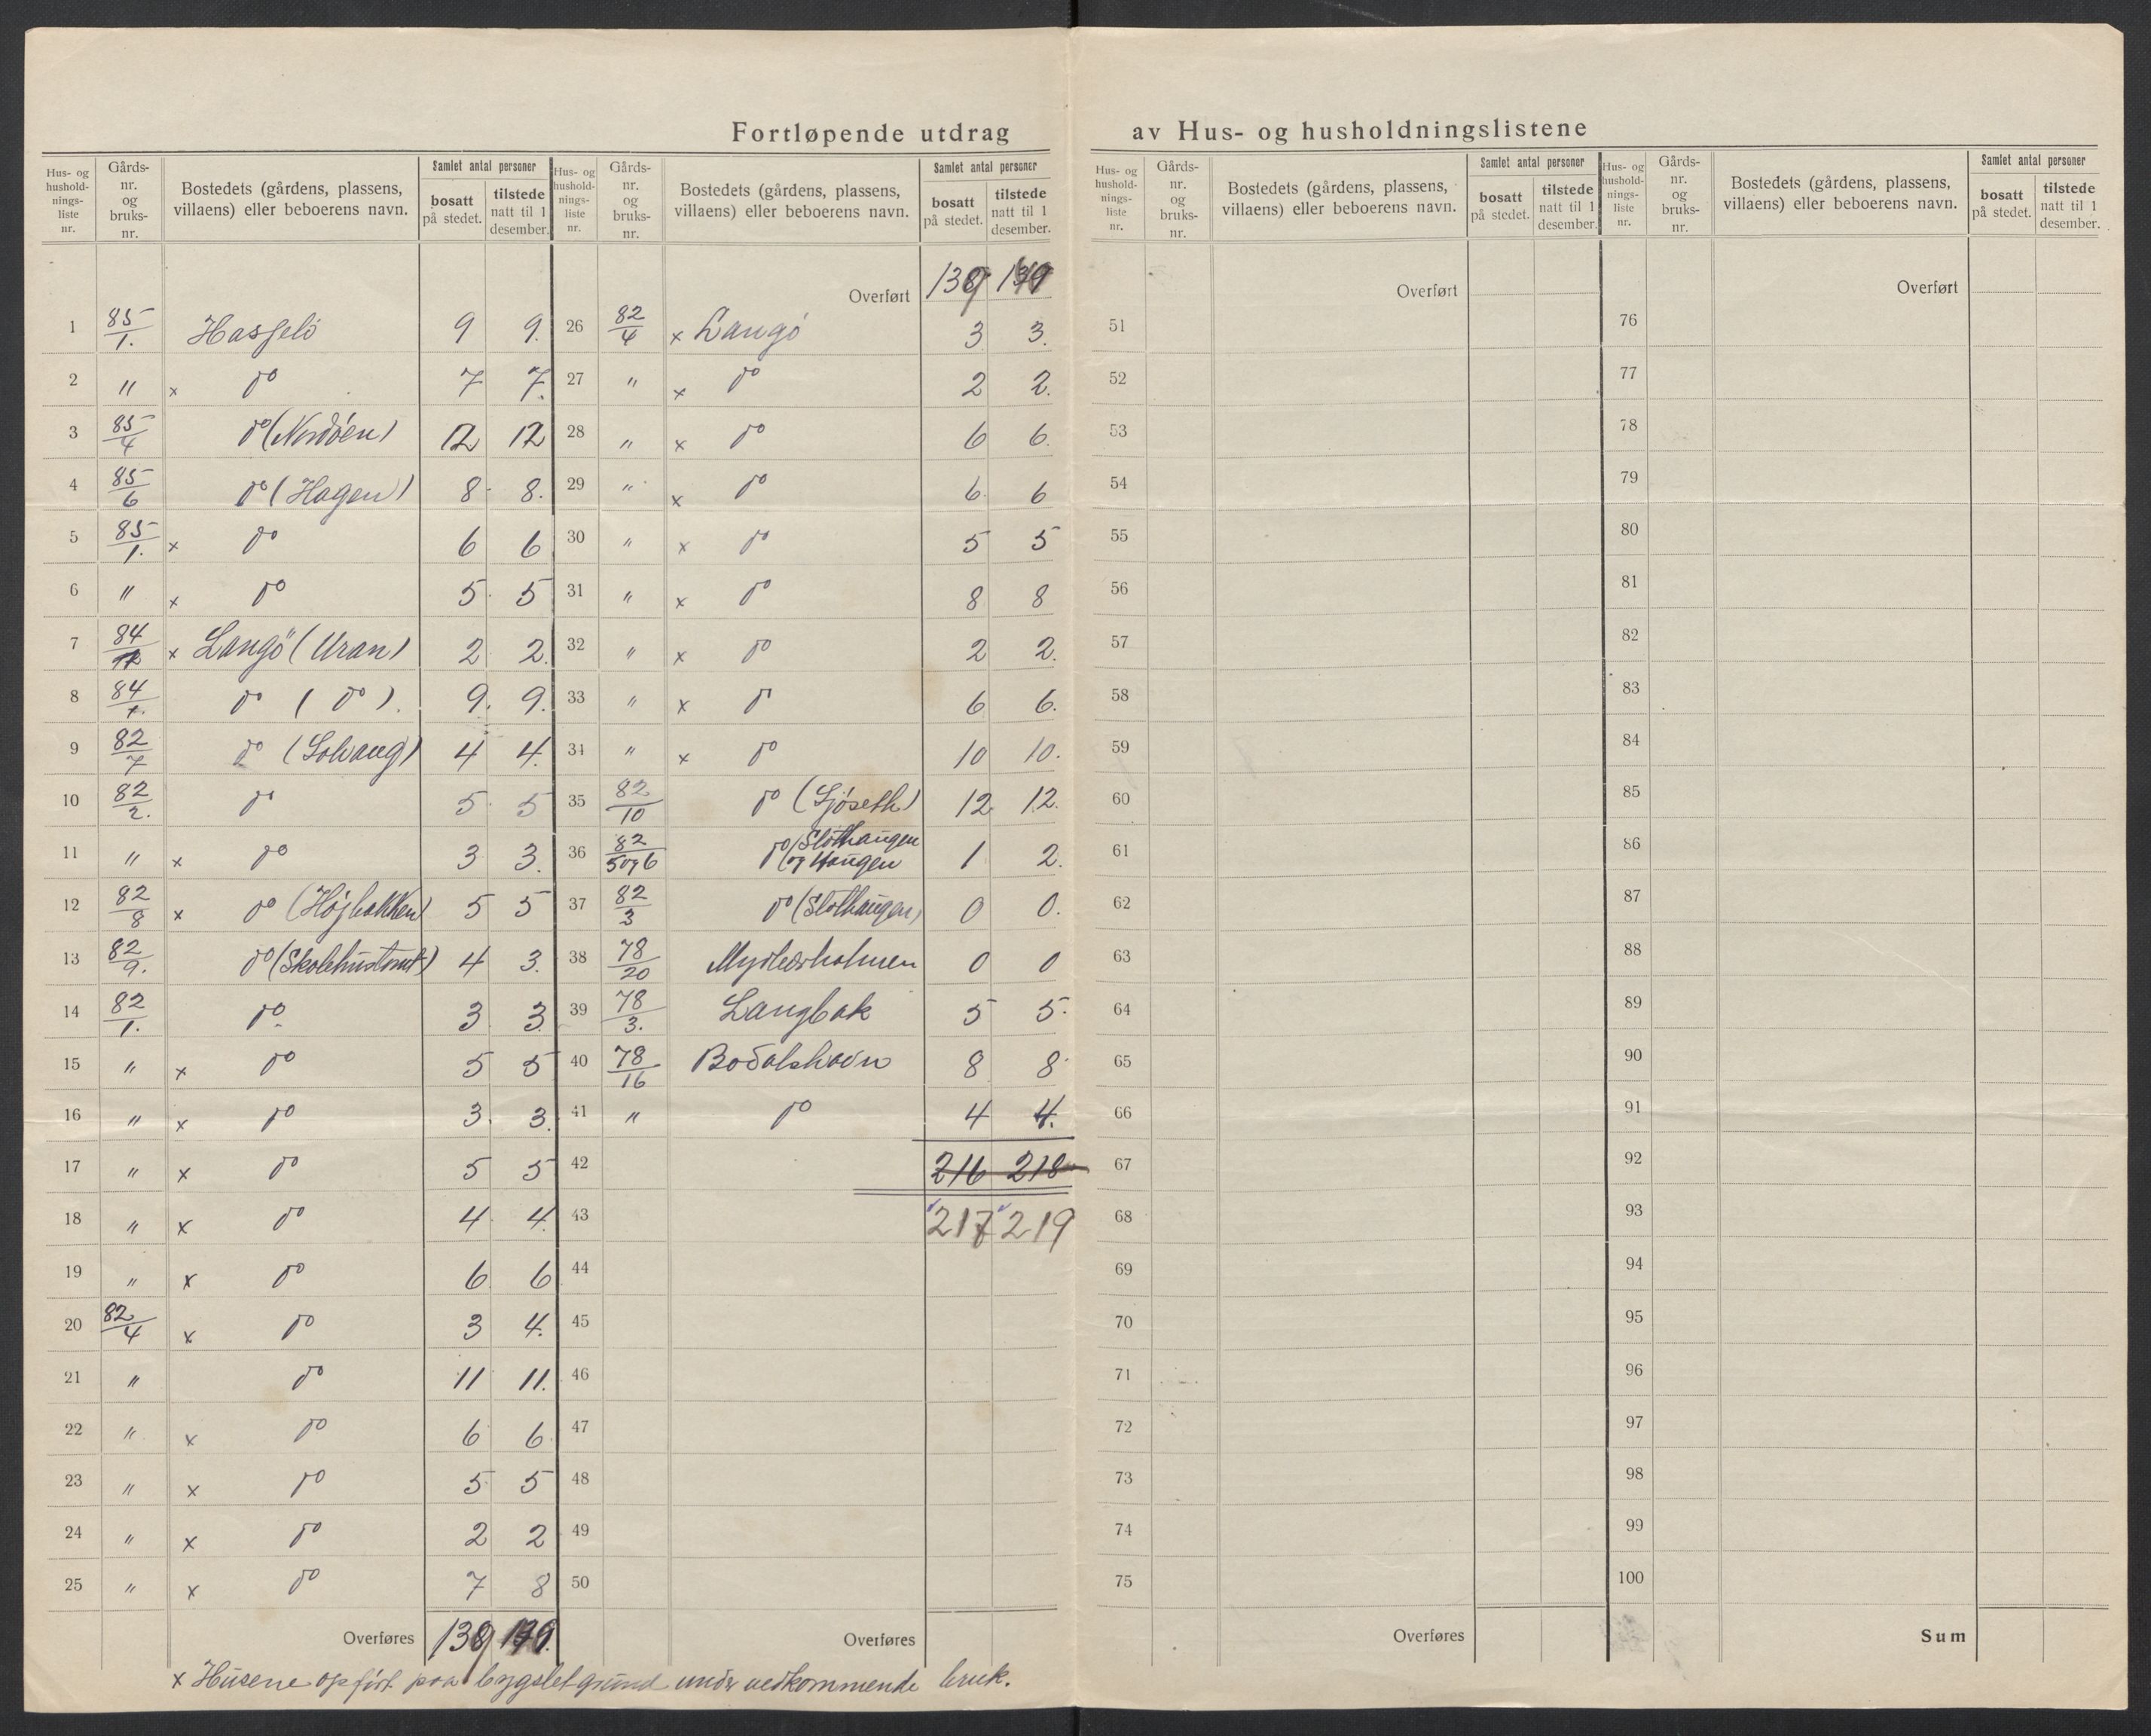 Fortløpende utdrag av Hus- og husholdningslistene
Hus- og hushold-nings-liste nr. Gårds-nr. og bruks-nr. Bostedets (gårdens, plassens, villaens) eller beboerens navn. Samlet antal personer bosatt på stedet. tilstede natt til 1 desember.
1 85/1. Hasselö 9 9.
2 " x do 7 7.
3 85/4 do (Nordöen) 12 12
4 85/6 do (Hagen) 8 8.
5 85/1. x do 6 6
6 " x do 5 5
7 84/ x Langö (Uran) 2 2.
8 84/1. do (do). 9. 9.
9 82/7 do (Solvang) 4 4.
10 82/2. do 5 5
11 " x do 3 3.
12 82/8 x do (Höjbakken) 5 5
13 82/9. do (Skolehustomt) 4 3.
14 82/1. do 3 3
15 " x do 5 5
16 " x do 3. 3.
17 " x do 5 5
18 " x do 4 4.
19 " x do 6 6
20 82/4 x do 3 4.
21 " do 11 11.
22 " x do 6 6
23 " x do 5 5
24 " x do 2 2
25 " x do 7 8
Overføres 139
Hus- og hushold-nings-liste nr. Gårds-nr. og bruks-nr. Bostedets (gårdens, plassens, villaens) eller beboerens navn. Samlet antal personer bosatt på stedet. tilstede natt til 1 desember.
Overført 139
26 82/4 x Langö 3 3.
27 " x do 2 2.
28 " x do 6 6.
29 " x do 6 6
30 " x do 5 5
31 " x do 8 8
32 " x do 2 2.
33 " x do 6 6.
34 " x do 10 10.
35 82/10 do (Sjöseth) 12 12.
36 82/5 og 6 do (Slothaugen og Haugen 1 2.
37 82/3 do (Slothaugen) 0 0.
38 78/20 0 0
39 78/3. Langbak 5 5.
40 78/16 Bodalshavn 8 8
41 " do 4 4.
42 216 218
43 217 219
44
45
46
47
48
49
50
Overføres
Hus- og hushold-nings-liste nr. Gårds-nr. og bruks-nr. Bostedets (gårdens, plassens, villaens) eller beboerens navn. Samlet antal personer bosatt på stedet. tilstede natt til 1 desember.
Overført
51
52
53
54
55
56
57
58
59
60
61
62
63
64
65
66
67
68
69
70
71
72
73
74
75
Overføres
Hus- og hushold-nings-liste nr. Gårds-nr. og bruks-nr. Bostedets (gårdens, plassens, villaens) eller beboerens navn. Samlet antal personer bosatt på stedet. tilstede natt til 1 desember.
Overført
76
77
78
79
80
81
82
83
84
85
86
87
88
89
90
91
92
93
94
95
96
97
98
99
100
Sum
x Husene opfört paa bygslet grund under vedkommende bruk.